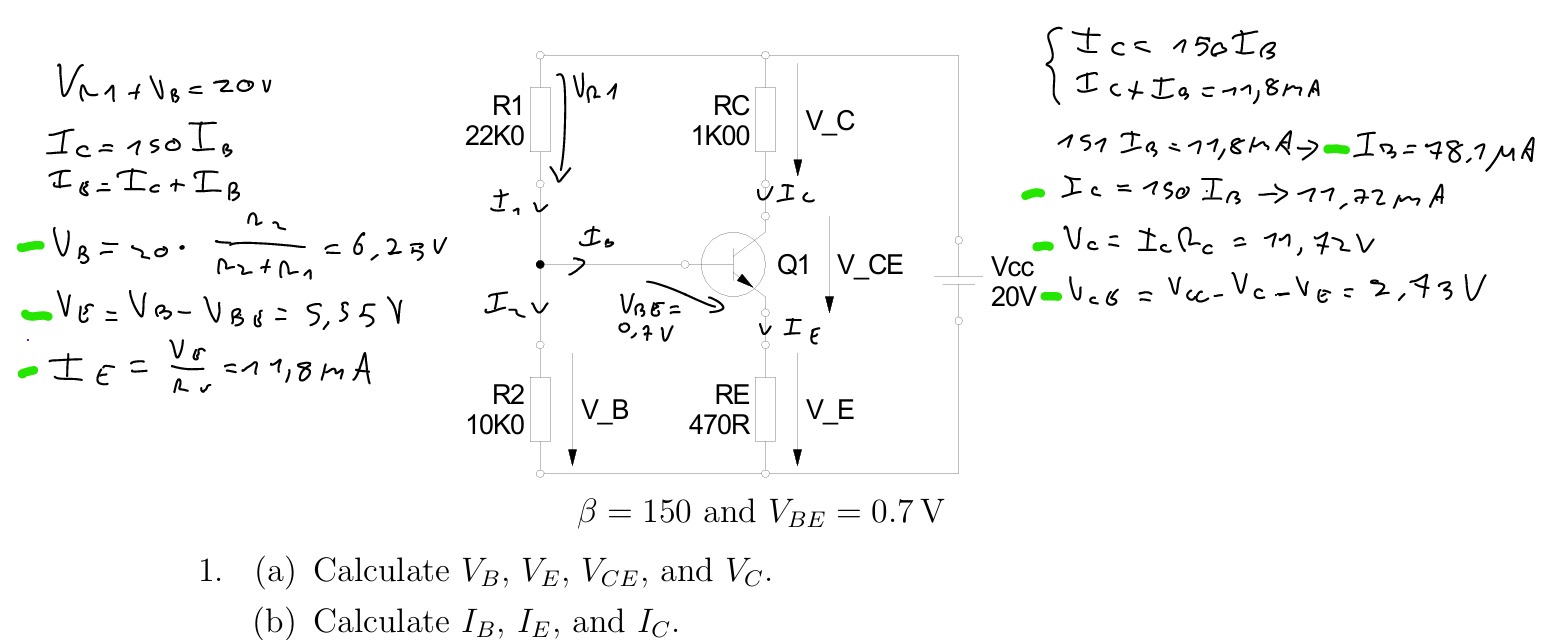 V_R1 + V_B = 20V
I_C = 150 I_B
I_E = I_C + I_B
V_B = 20 · R2 / (R2 + R1) = 6,25V
V_E = V_B - V_BE = 5,55V
I_E = V_E / R_E = 11,8mA
V_R1
R1
22K0
I_1
I_B
I_2
V_BE =
0,7V
R2
10K0
V_B
RC
1K00
V_C
I_C
Q1
V_CE
I_E
RE
470R
V_E
Vcc
20V
I_C = 150 I_B
I_C + I_B = 11,8mA
151 I_B = 11,8mA → I_B = 78,1µA
I_C = 150 I_B → 11,72mA
V_C = I_C R_C = 11,72V
V_CE = V_CC - V_C - V_E = 2,73V
β = 150 and V_BE = 0.7 V
1. (a) Calculate V_B, V_E, V_CE, and V_C.
(b) Calculate I_B, I_E, and I_C.